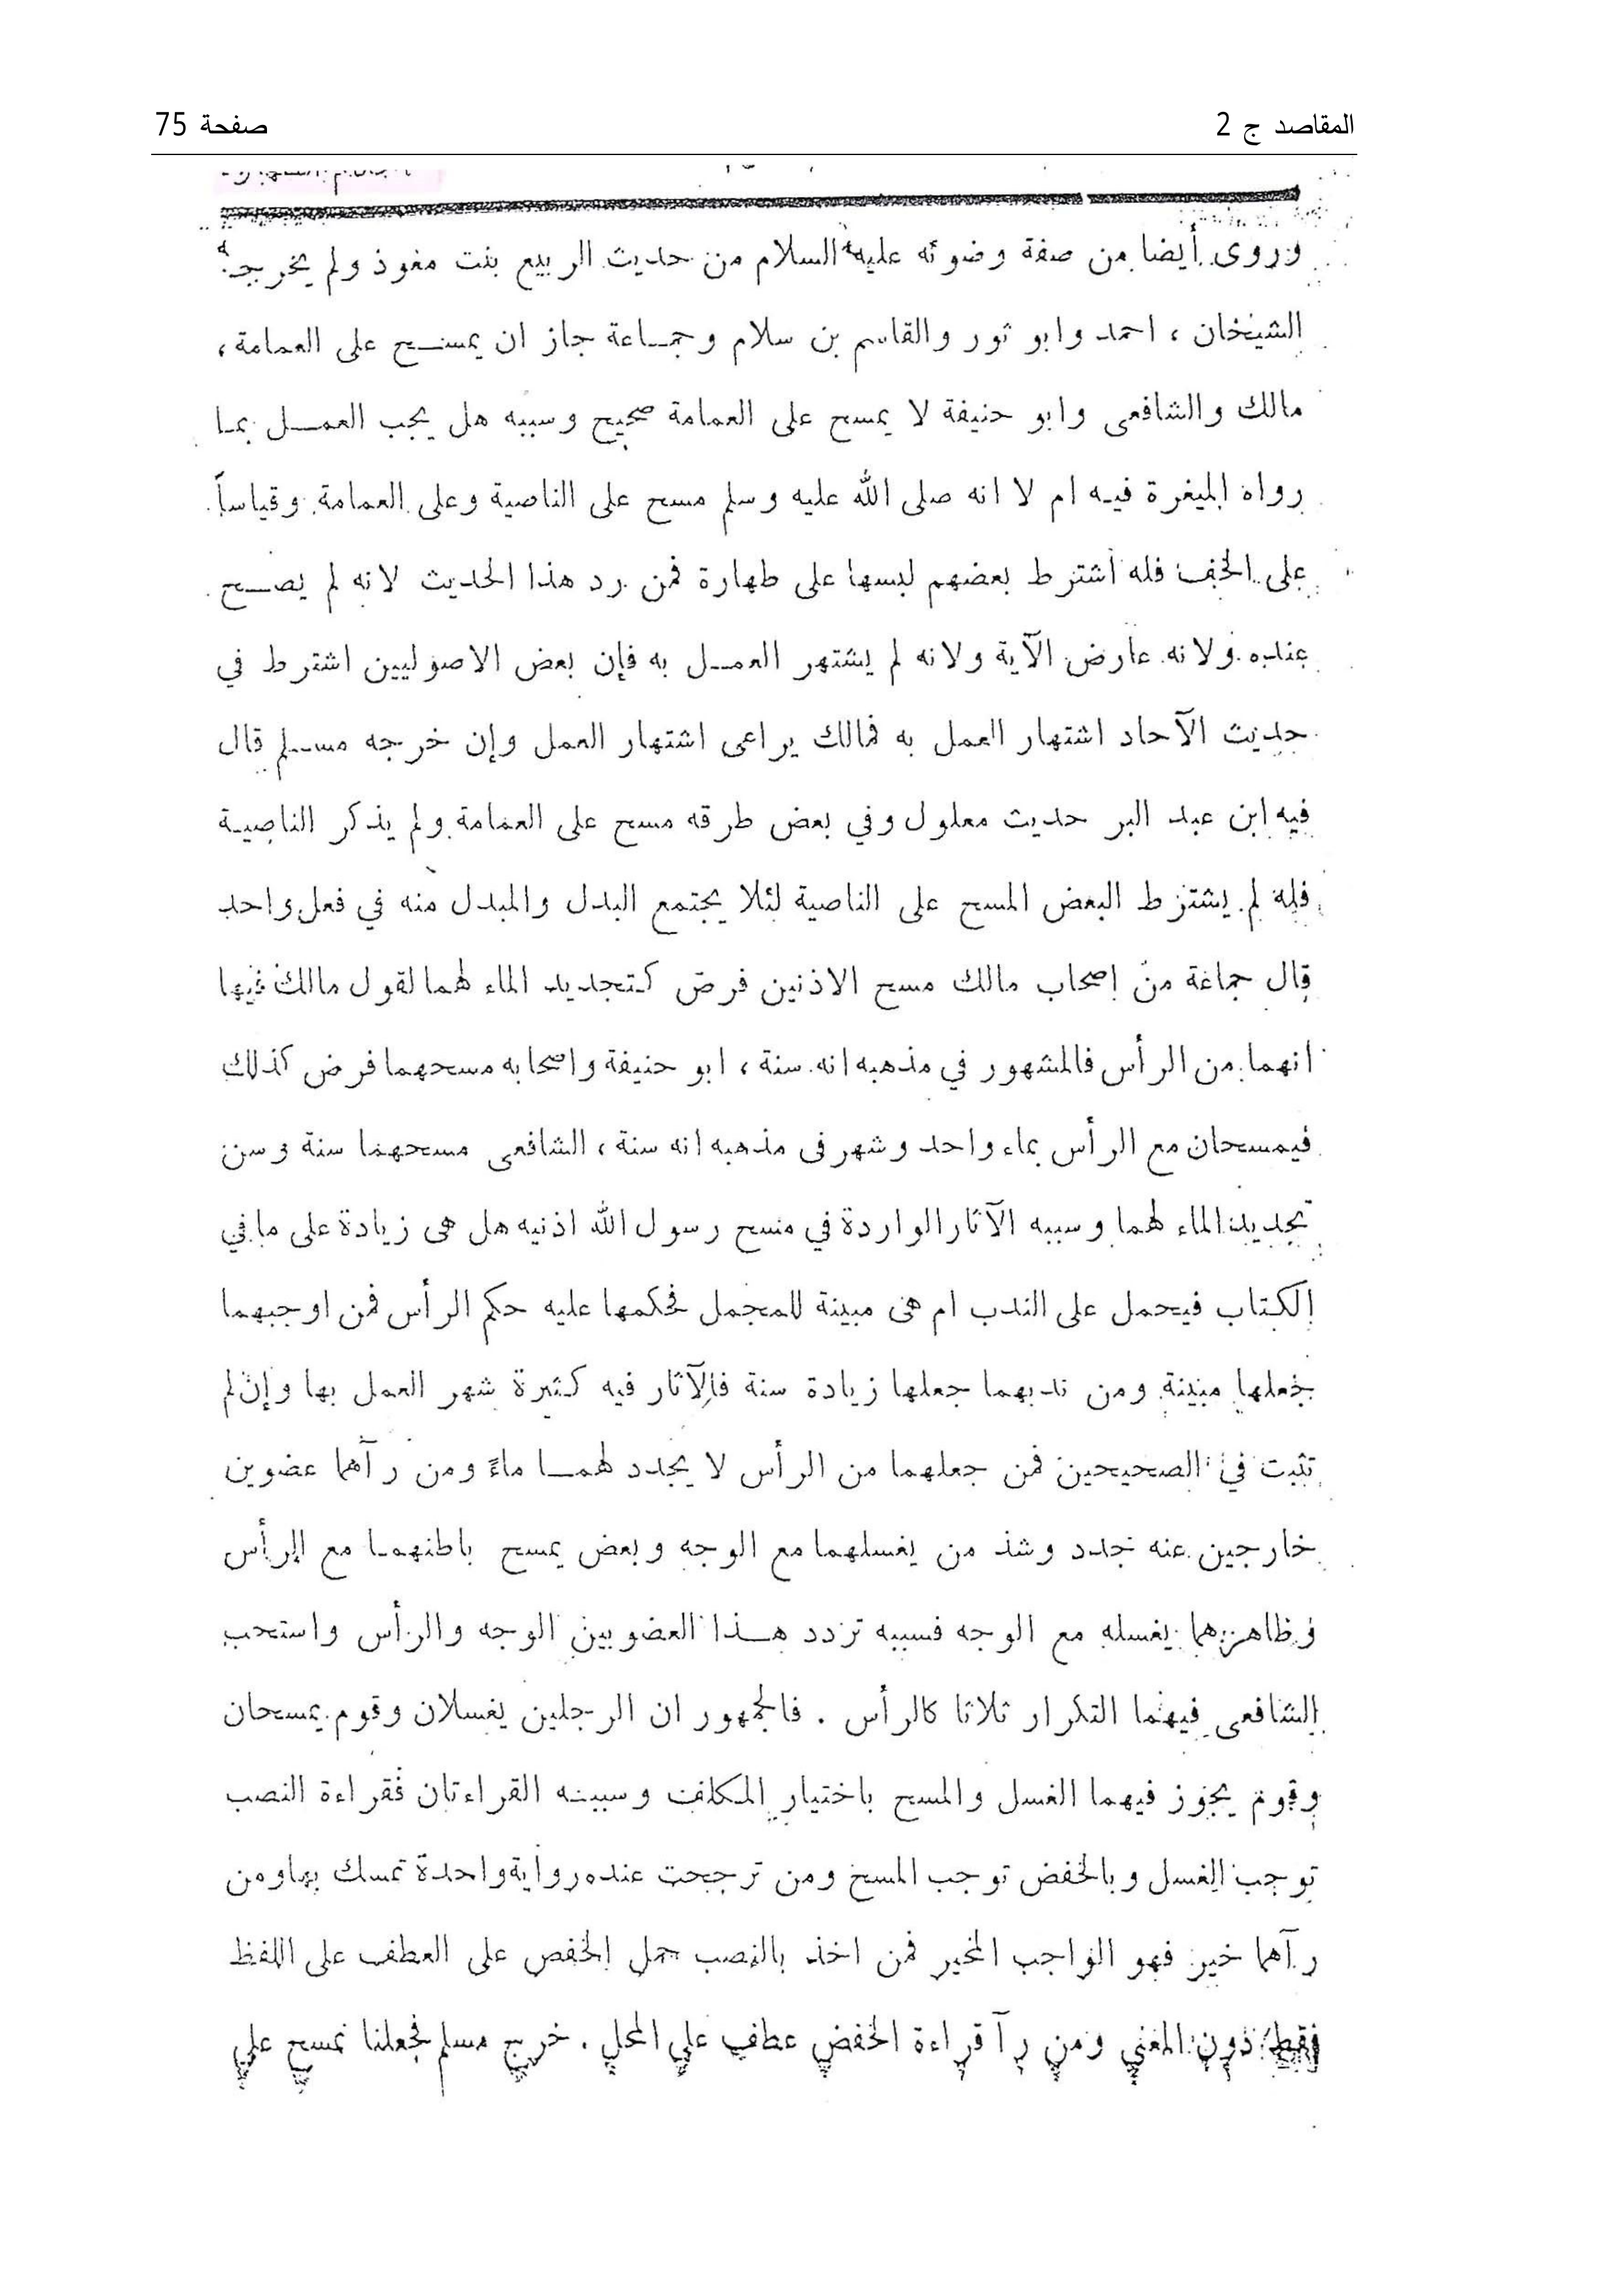 المقاصد ج 2
صفحة 75
وروى أيضا من صفة وضوئه عليه السلام من حديث الربيع بنت معوذ ولم يخرجه
الشيخان ، احمد وابو ثور والقاسم بن سلام وجماعة جاز ان يمسح على العمامة ،
مالك والشافعى وابو حنيفة لا يمسح على العمامة صحيح وسببه هل يجب العمل بما
رواه الميغرة فيه ام لا انه صلى الله عليه وسلم مسح على الناصية وعلى العمامة وقياساً
على الخف فله اشترط بعضهم لبسها على طهارة فمن رد هذا الحديث لانه لم يصح
عنده ولانه عارض الآية ولانه لم يشتهر العمل به فإن بعض الاصوليين اشترط في
حديث الآحاد اشتهار العمل به فمالك يراعى اشتهار العمل وإن خرجه مسلم قال
فيه ابن عبد البر حديث معلول وفي بعض طرقه مسح على العمامة ولم يذكر الناصية
فله لم يشترط البعض المسح على الناصية لئلا يجتمع البدل والمبدل منه في فعل واحد
قال جماعة من إصحاب مالك مسح الاذنين فرض كتجديد الماء لهما لقول مالك فيها
انهما من الرأس فالمشهور في مذهبه انه سنة ، ابو حنيفة واصحابه مسحهما فرض كذلك
فيمسحان مع الرأس بماء واحد وشهر فى مذهبه انه سنة ، الشافعى مسحهما سنة وسن
تجديد الماء لهما وسببه الآثار الواردة في مسح رسول الله اذنيه هل هى زيادة على ما في
الكتاب فيحمل على الندب ام هى مبينة للمجمل فحكمها عليه حكم الرأس فمن اوجبهما
جعلها مبينة ومن ندبهما جعلها زيادة سنة فالآثار فيه كثيرة شهر العمل بها وإن لم
تثبت في الصحيحين فمن جعلهما من الرأس لا يجدد لهما ماءً ومن رآهما عضوين
خارجين عنه جدد وشذ من يغسلهما مع الوجه وبعض يمسح باطنهما مع الرأس
وظاهرهما يغسله مع الوجه فسببه تردد هذا العضو بين الوجه والرأس واستحب
الشافعى فيهما التكرار ثلاثا كالرأس . فالجمهور ان الرجلين يغسلان وقوم يمسحان
وقوم يجوز فيهما الغسل والمسح باختيار المكلف وسببه القراءتان فقراءة النصب
توجب الغسل وبالخفض توجب المسح ومن ترجحت عنده رواية واحدة تمسك بها ومن
رآهما خير فهو الواجب المخير فمن اخذ بالنصب حمل الخفص على العطف على اللفظ
فقط دون المعني ومن رآ قراءة الخفض عطف على المحل . خرج مسلم فجعلنا نمسح على